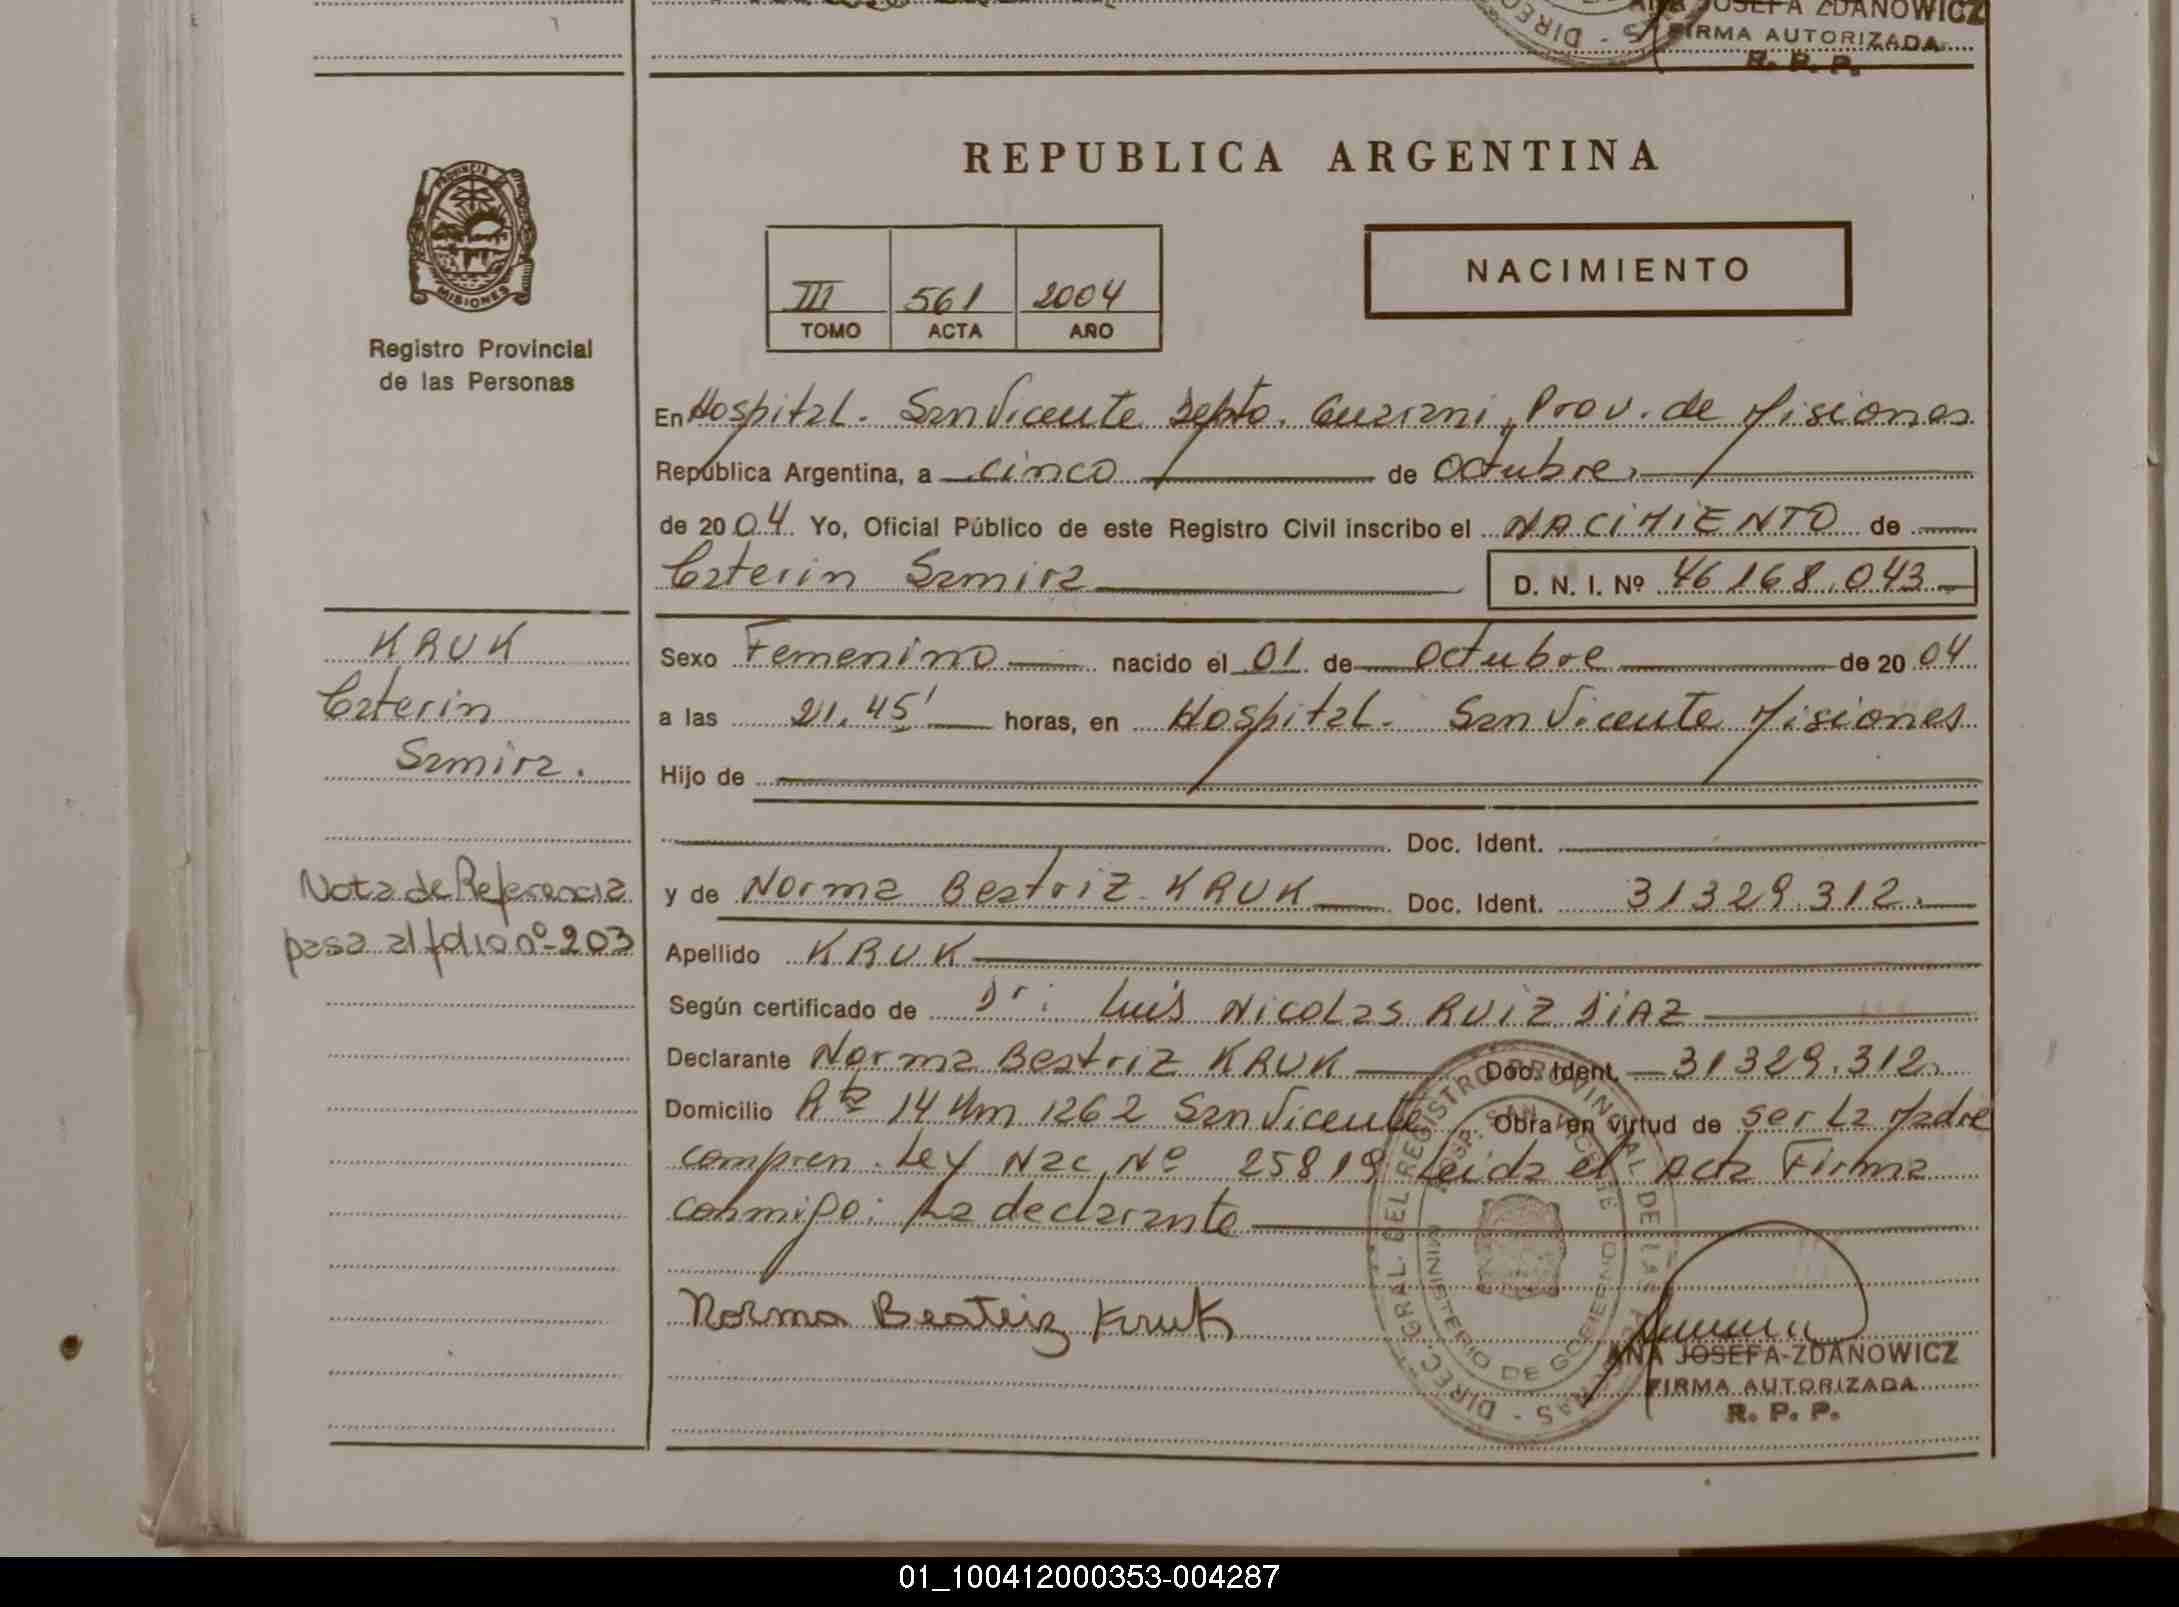 DIREC S
ANA JOSEFA ZDANOWICZ
FIRMA AUTORIZADA
R. P. P.
PROVINCIA DE
MISIONES
Registro Provincial
de las Personas
REPUBLICA ARGENTINA
III 561 2004
TOMO ACTA AÑO
NACIMIENTO
En Hospital. San Vicente Depto. Guarani, Prov. de Misiones
República Argentina, a cinco de Octubre.
de 2004. Yo, Oficial Público de este Registro Civil inscribo el NACIMIENTO de
Caterin Samira D. N. I. Nº 46.168.043
KRUK
Caterin
Samira.
Nota de Referencia
pasa al folio nº 203
Sexo Femenino nacido el 01 de Octubre de 2004
a las 21.45' horas, en Hospital. San Vicente Misiones
Hijo de
Doc. Ident.
y de Norma Beatriz KRUK Doc. Ident. 31329.312.
Apellido KRUK
Según certificado de Dr: Luis Nicolas RUIZ DIAZ
Declarante Norma Beatriz KRUK Doc. Ident. 31329.312.
Domicilio Rta 14 Km 1262 San Vicente Obra en virtud de ser La Madre
compren. Ley Nac. Nº 25819 Leida el Acta Firma
conmigo: La declarante
Norma Beatriz Kruk
DIREC. GRAL. DEL REGISTRO PROVINCIAL DE LAS PERSONAS
HOSP. SAN VICENTE
MINISTERIO DE GOBIERNO
ANA JOSEFA ZDANOWICZ
FIRMA AUTORIZADA
R. P. P.
01_100412000353-004287